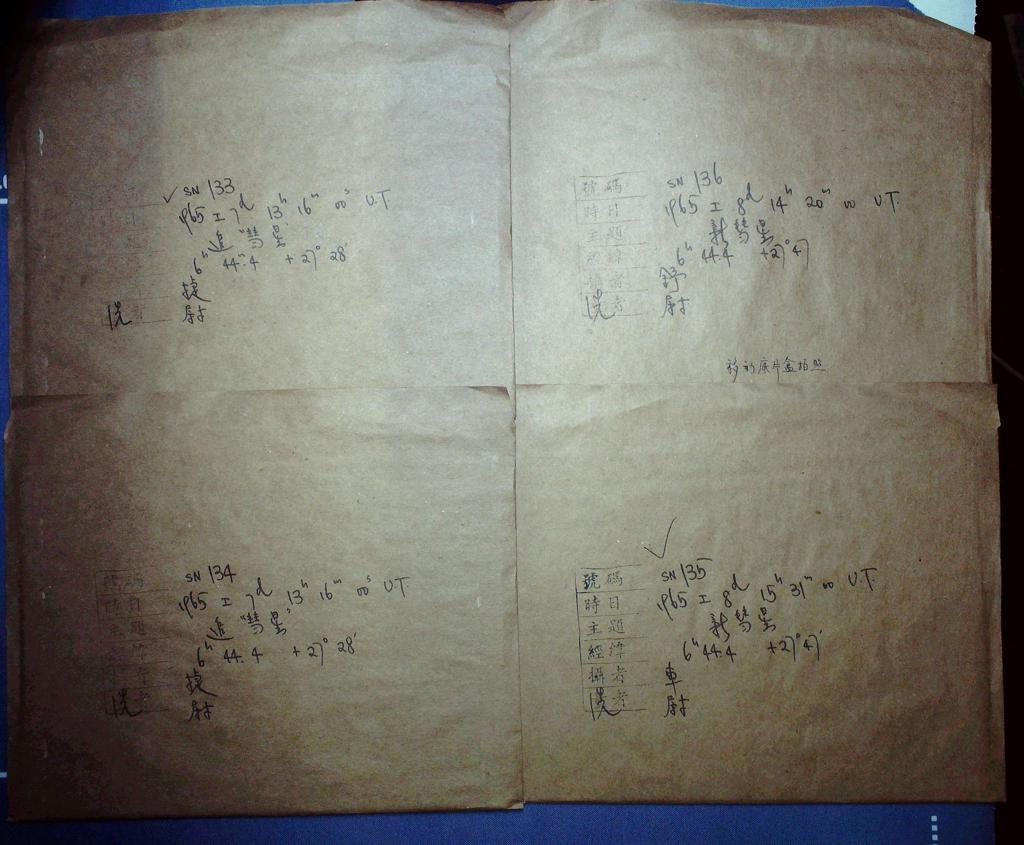 SN 133
1965 I 7d 13h 16m 00s U.T.
追"彗星"
6h 44m.4 +27° 28'
捷
洗 者 尉
號碼 SN 136
時日 1965 I 8d 14h 20m 00 U.T.
主題 新彗星
6h 44.4 +27° 47
者 舒
洗 者 尉
底片盒拍照
號碼 SN 134
時日 1965 I 7d 13h 16m 00s U.T.
主題 追"彗星"
6h 44.4 +27° 28'
捷
洗 者 尉
號碼 SN 135
時日 1965 I 8d 15h 31m 00 U.T.
主題 新彗星
經緯 6h 44.4 +27° 47'
攝者 車
洗 者 尉